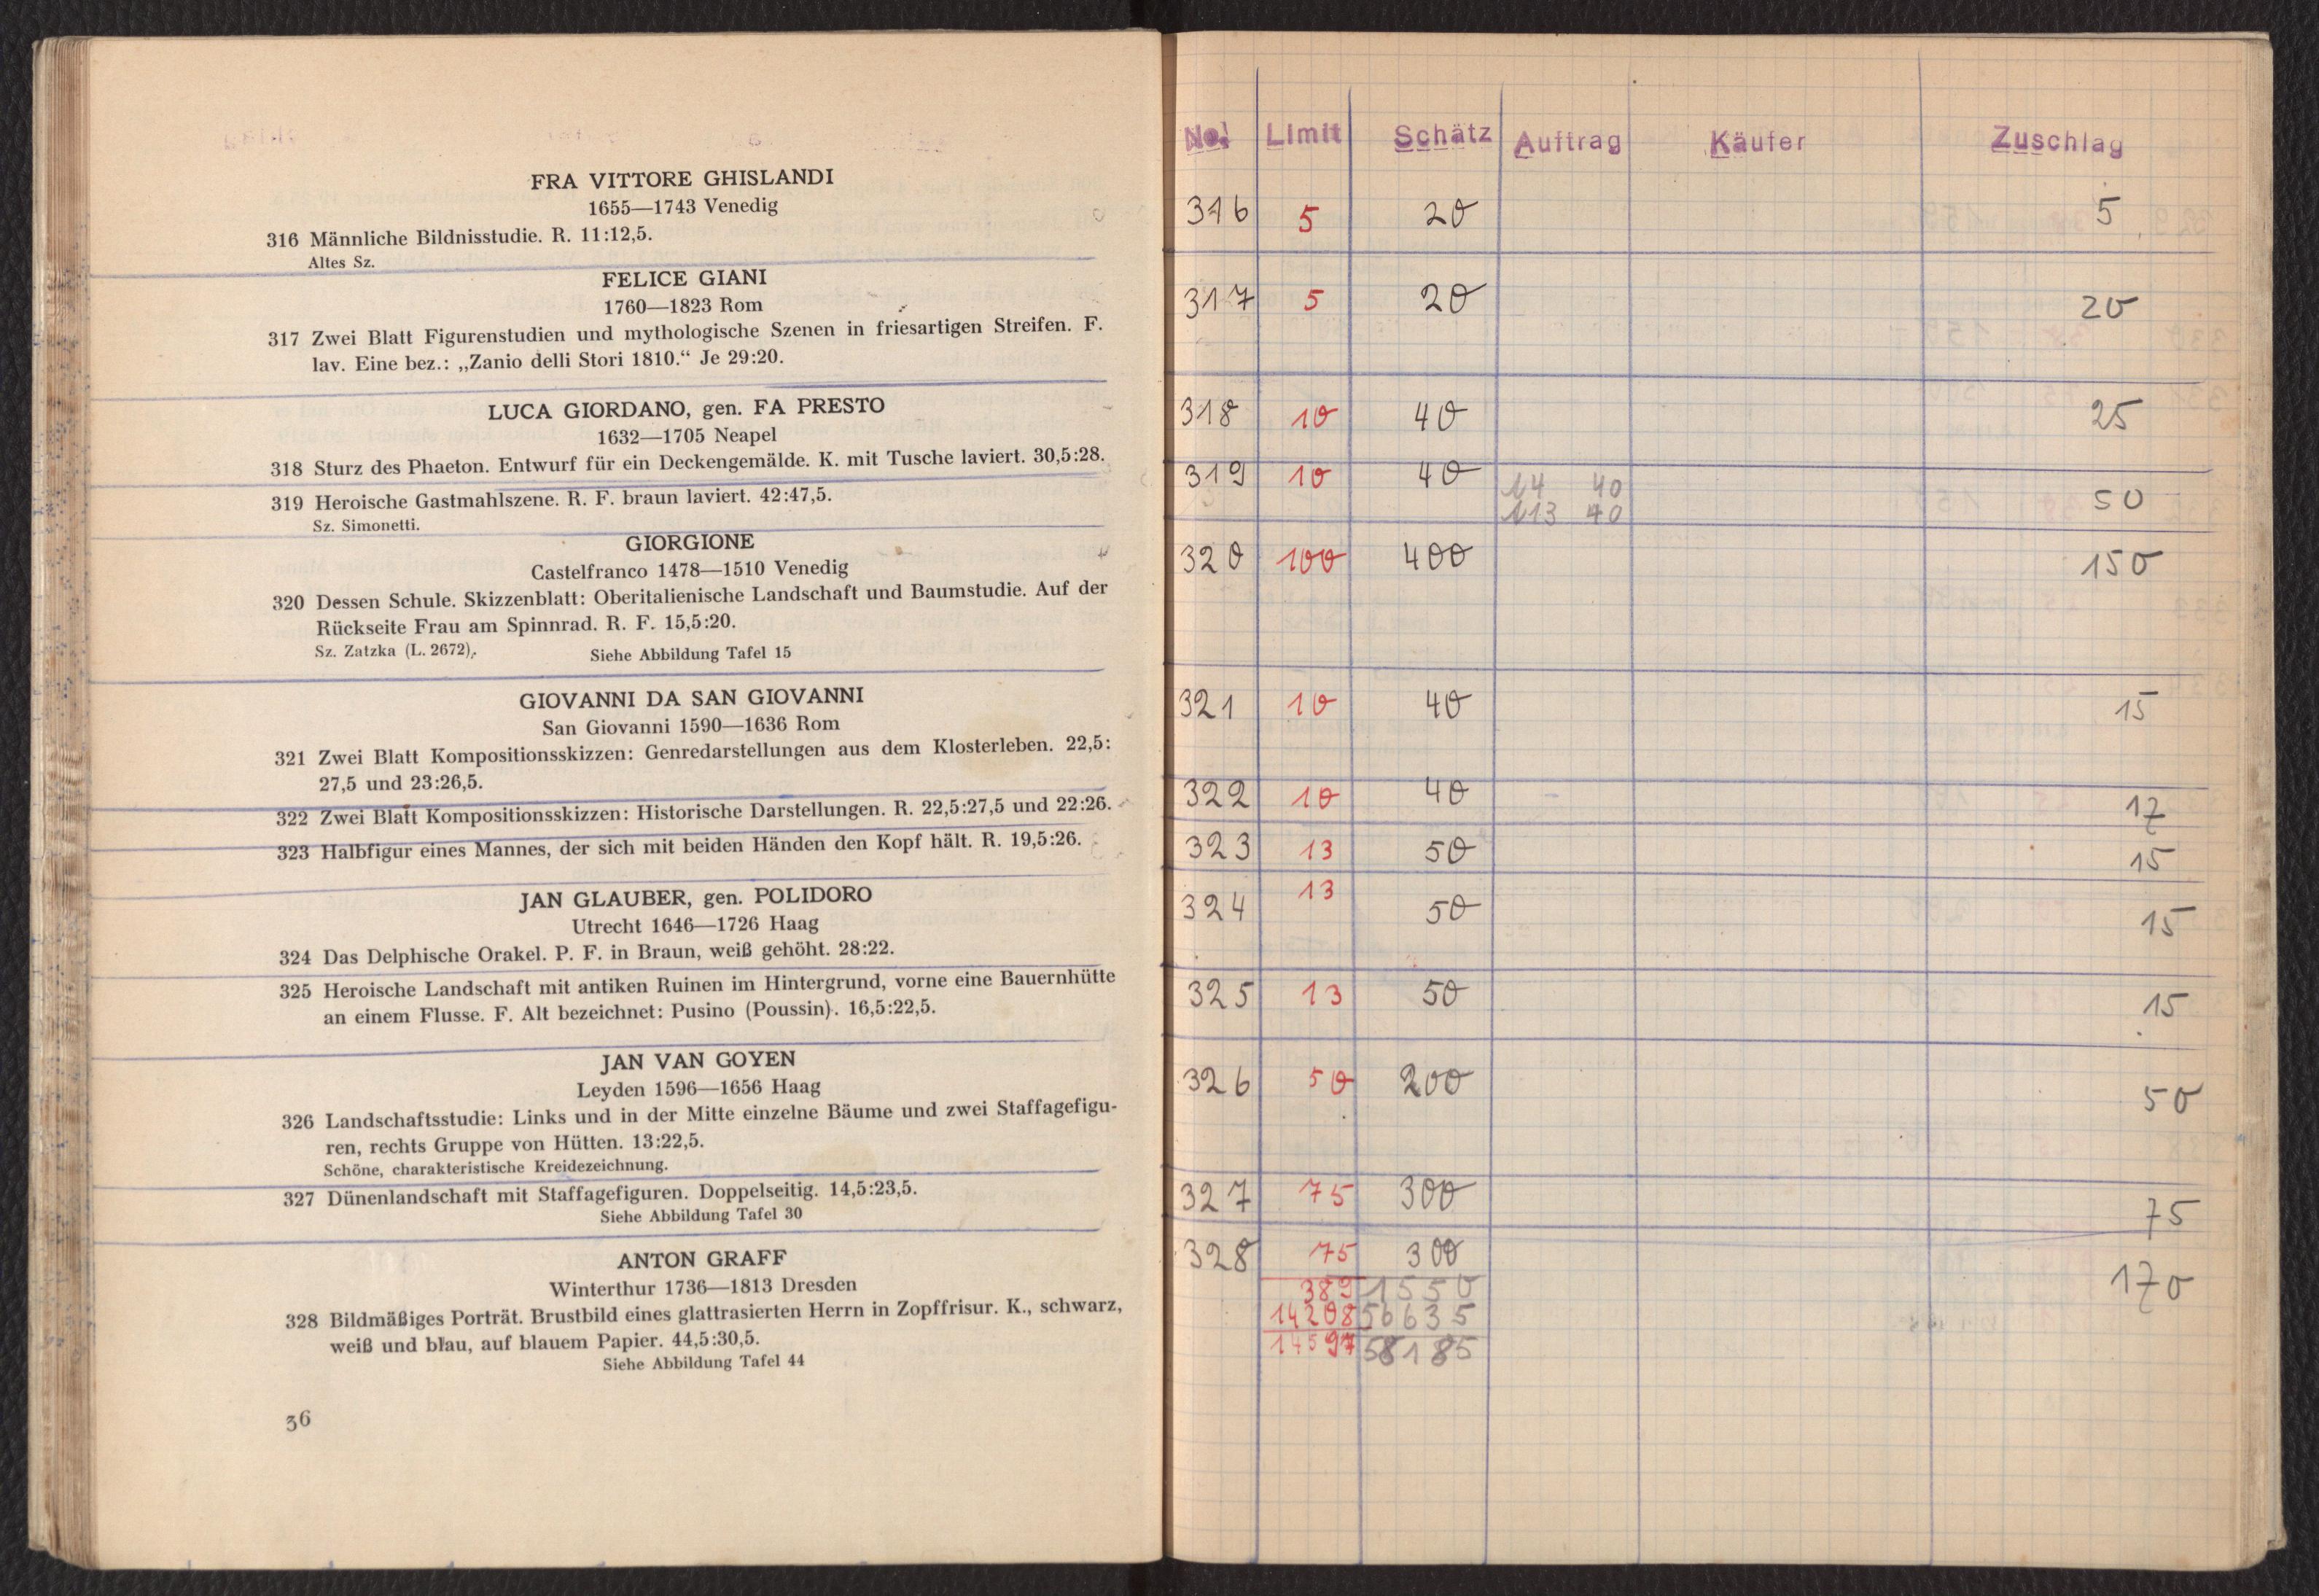 FRA VITTORE GHISLANDI
1655—1743 Venedig
316 Männliche Bildnisstudie. R. 11:12,5.
Altes Sz.
FELICE GIANI
1760—1823 Rom
317 Zwei Blatt Figurenstudien und mythologische Szenen in friesartigen Streifen. F.
lav. Eine bez.: „Zanio delli Stori 1810.“ Je 29:20.
LUCA GIORDANO, gen. FA PRESTO
1632—1705 Neapel
318 Sturz des Phaeton. Entwurf für ein Deckengemälde. K. mit Tusche laviert. 30,5:28.
319 Heroische Gastmahlszene. R. F. braun laviert. 42:47,5.
Sz. Simonetti.
GIORGIONE
Castelfranco 1478—1510 Venedig
320 Dessen Schule. Skizzenblatt: Oberitalienische Landschaft und Baumstudie. Auf der
Rückseite Frau am Spinnrad. R. F. 15,5:20.
Sz. Zatzka (L. 2672).
Siehe Abbildung Tafel 15
GIOVANNI DA SAN GIOVANNI
San Giovanni 1590—1636 Rom
321 Zwei Blatt Kompositionsskizzen: Genredarstellungen aus dem Klosterleben. 22,5:
27,5 und 23:26,5.
322 Zwei Blatt Kompositionsskizzen: Historische Darstellungen. R. 22,5:27,5 und 22:26.
323 Halbfigur eines Mannes, der sich mit beiden Händen den Kopf hält. R. 19,5:26.
JAN GLAUBER, gen. POLIDORO
Utrecht 1646—1726 Haag
324 Das Delphische Orakel. P. F. in Braun, weiß gehöht. 28:22.
325 Heroische Landschaft mit antiken Ruinen im Hintergrund, vorne eine Bauernhütte
an einem Flusse. F. Alt bezeichnet: Pusino (Poussin). 16,5:22,5.
JAN VAN GOYEN
Leyden 1596—1656 Haag
326 Landschaftsstudie: Links und in der Mitte einzelne Bäume und zwei Staffagefigu-
ren, rechts Gruppe von Hütten. 13:22,5.
Schöne, charakteristische Kreidezeichnung.
327 Dünenlandschaft mit Staffagefiguren. Doppelseitig. 14,5:23,5.
Siehe Abbildung Tafel 30
ANTON GRAFF
Winterthur 1736—1813 Dresden
328 Bildmäßiges Porträt. Brustbild eines glattrasierten Herrn in Zopffrisur. K., schwarz,
weiß und blau, auf blauem Papier. 44,5:30,5.
Siehe Abbildung Tafel 44
36
No. Limit Schätz Auftrag Käufer Zuschlag
316 5 20 5
317 5 20 20
318 10 40 25
319 10 40 50
40
40
320 100 400 150
321 10 40 15
322 10 40 17
323 13 50 15
324 13 50 15
325 13 50 15
326 50 200 50
327 75 300 75
328 75 300 170
389 1550
14208 56635
14597 58185